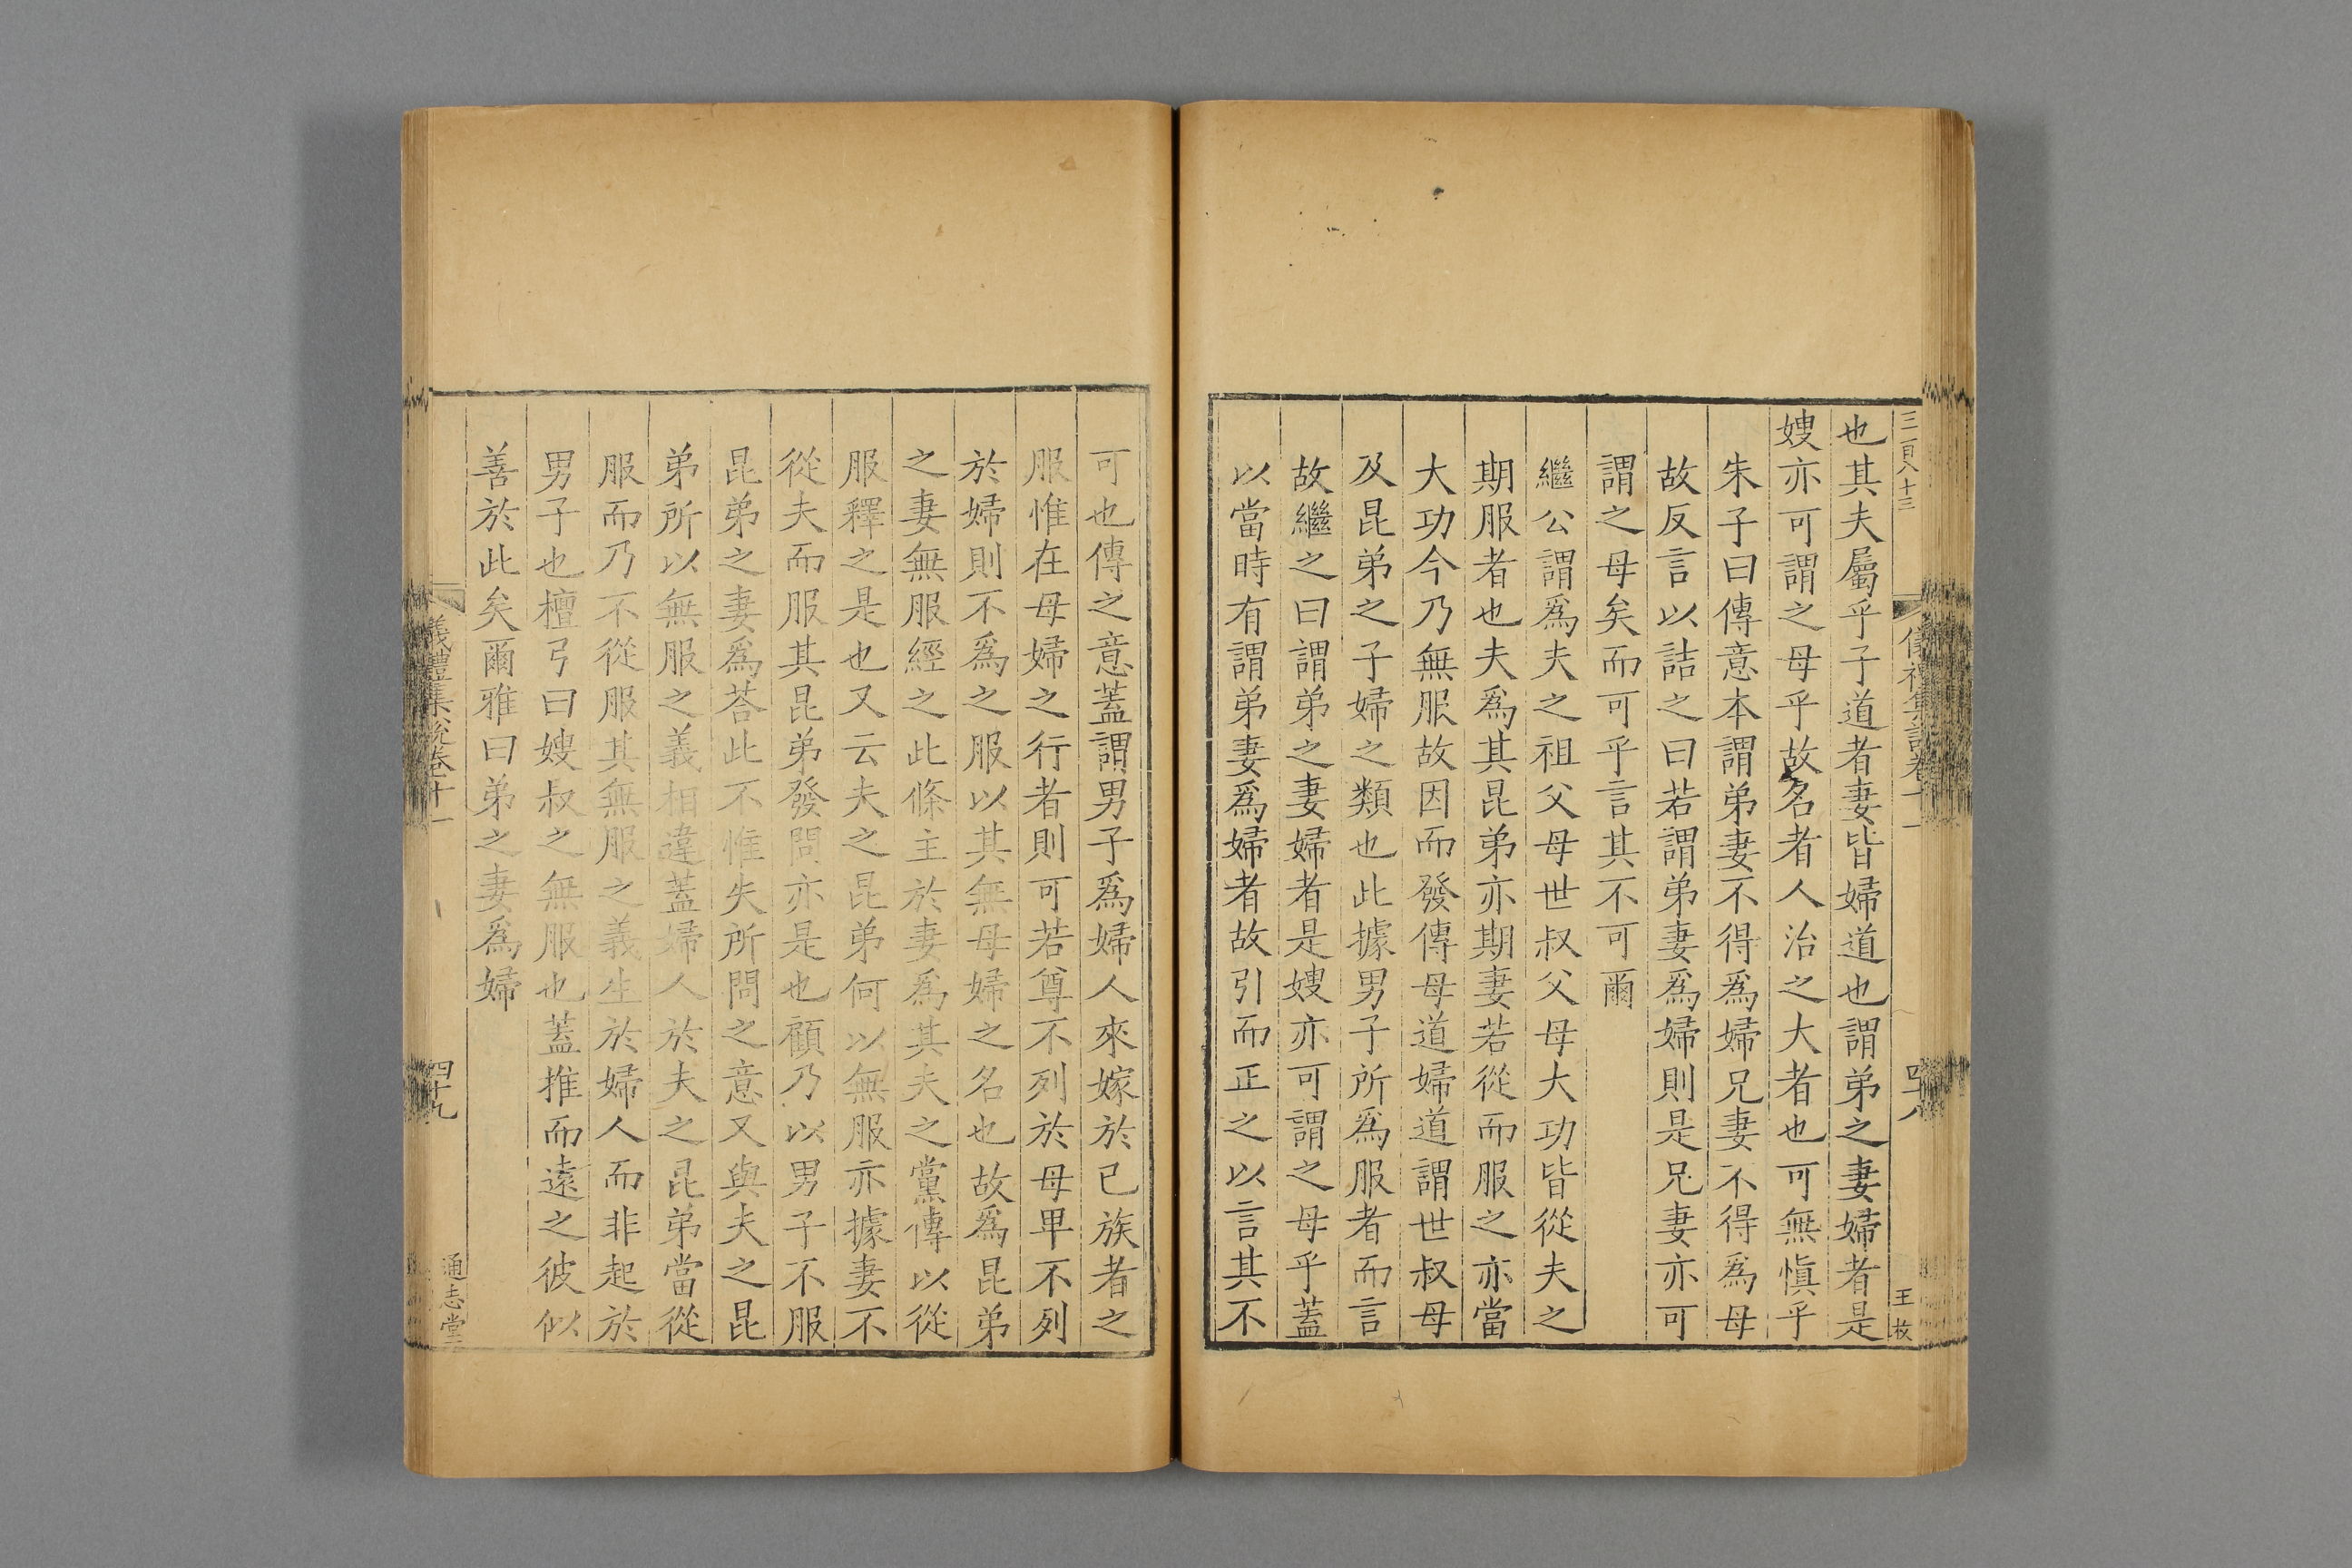 三百八十三
儀禮集說卷十一
四十八
王枚
也其夫屬乎子道者妻皆婦道也謂弟之妻婦者是
嫂亦可謂之母乎故名者人治之大者也可無慎乎
朱子曰傳意本謂弟妻不得爲婦兄妻不得爲母
故反言以詰之曰若謂弟妻爲婦則是兄妻亦可
謂之母矣而可乎言其不可爾
繼公謂爲夫之祖父母世叔父母大功皆從夫之
期服者也夫爲其昆弟亦期妻若從而服之亦當
大功今乃無服故因而發傳母道婦道謂世叔母
及昆弟之子婦之類也此據男子所爲服者而言
故繼之曰謂弟之妻婦者是嫂亦可謂之母乎蓋
以當時有謂弟妻爲婦者故引而正之以言其不
可也傳之意蓋謂男子爲婦人來嫁於已族者之
服惟在母婦之行者則可若尊不列於母卑不列
於婦則不爲之服以其無母婦之名也故爲昆弟
之妻無服經之此條主於妻爲其夫之黨傳以從
服釋之是也又云夫之昆弟何以無服亦據妻不
從夫而服其昆弟發問亦是也顧乃以男子不服
昆弟之妻爲荅此不惟失所問之意又與夫之昆
弟所以無服之義相違蓋婦人於夫之昆弟當從
服而乃不從服其無服之義生於婦人而非起於
男子也檀弓曰嫂叔之無服也蓋推而遠之彼似
善於此矣爾雅曰弟之妻爲婦
儀禮集說卷十一
四十九
通志堂